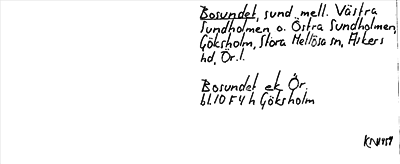 Bosundet, sund mell. Västra
Sundholmen o. Östra Sundholmen,
Göksholm, Stora Mellösa sn, Askers
hd, Ör.l.
Bosundet ek Ör.
bl. 10 F 4 h Göksholm
KN1959